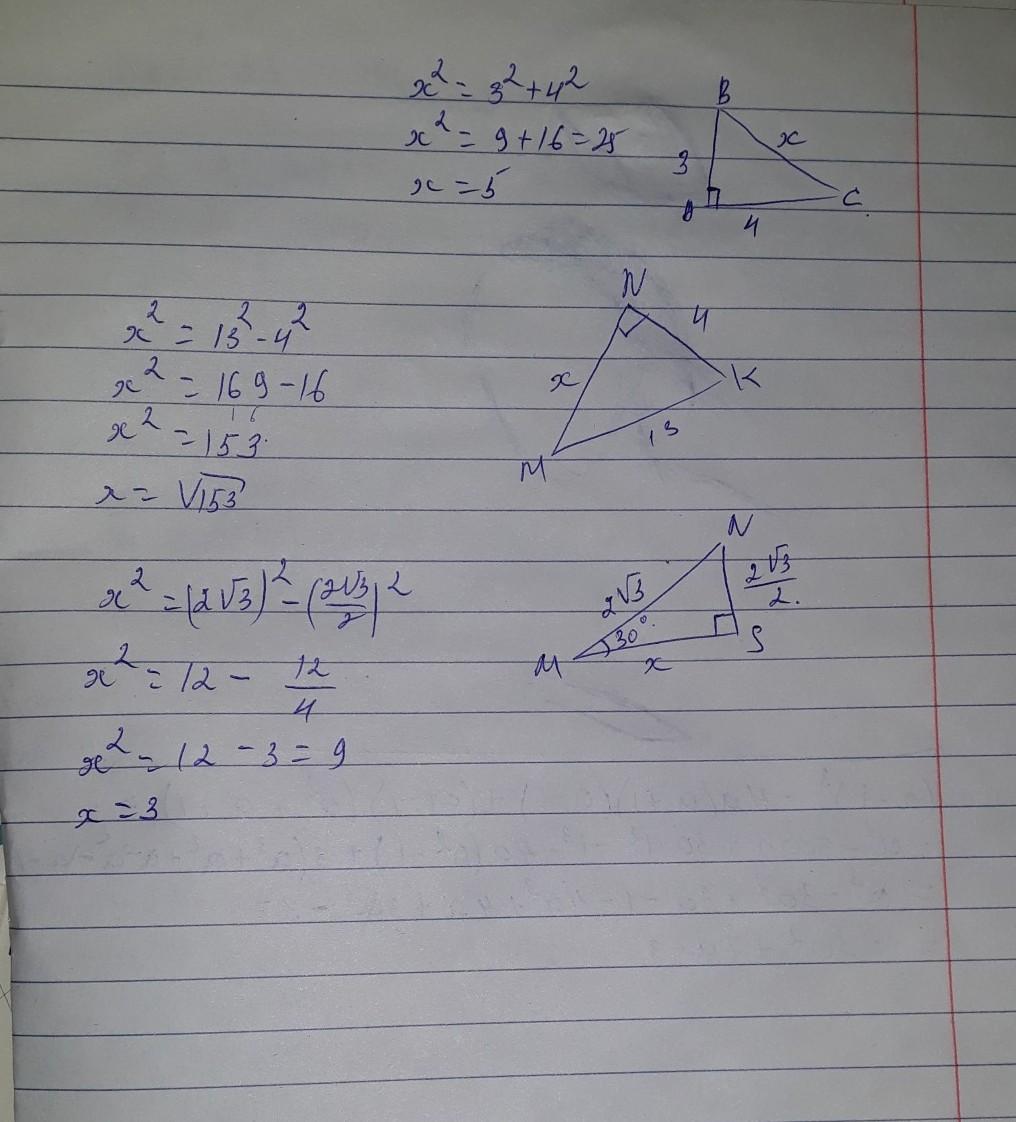 x² = 3² + 4²
x² = 9 + 16 = 25
x = 5
B
3
x
C
4
x² = 13² - 4²
x² = 169 - 16
x² = 153
x = √153
N
4
x
K
13
M
x² = (2√3)² - (2√3/2)²
x² = 12 - 12/4
x² = 12 - 3 = 9
x = 3
N
2√3
2√3/2.
30°.
M
x
S